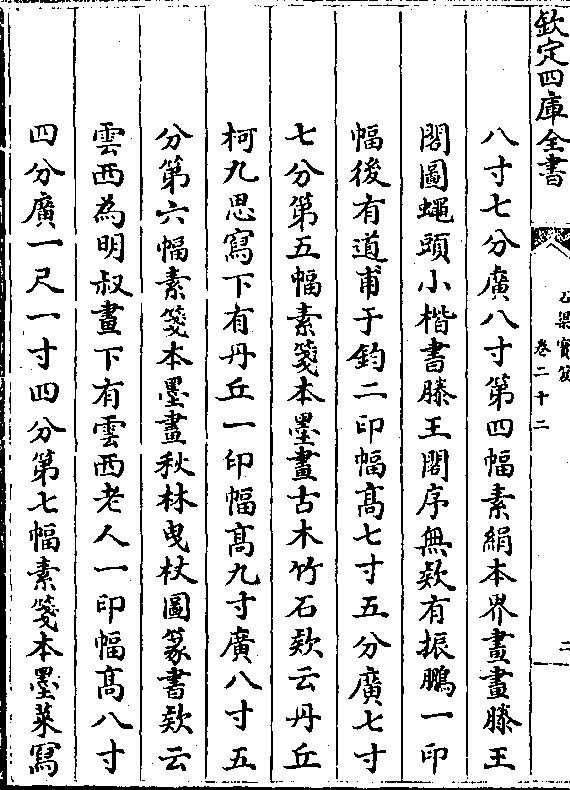 欽定四庫全書
石渠寳笈
卷二十二
二
八寸七分廣八寸第四幅素絹本界畫畫滕王
閣圖蠅頭小楷書滕王閣序無欵有振鵬一印
幅後有道甫于鈞二印幅髙七寸五分廣七寸
七分第五幅素箋本墨畫古木竹石欵云丹丘
柯九思寫下有丹丘一印幅髙九寸廣八寸五
分第六幅素箋本墨畫秋林曵杖圖篆書欵云
雲西為明叔畫下有雲西老人一印幅髙八寸
四分廣一尺一寸四分第七幅素箋本墨菜寫